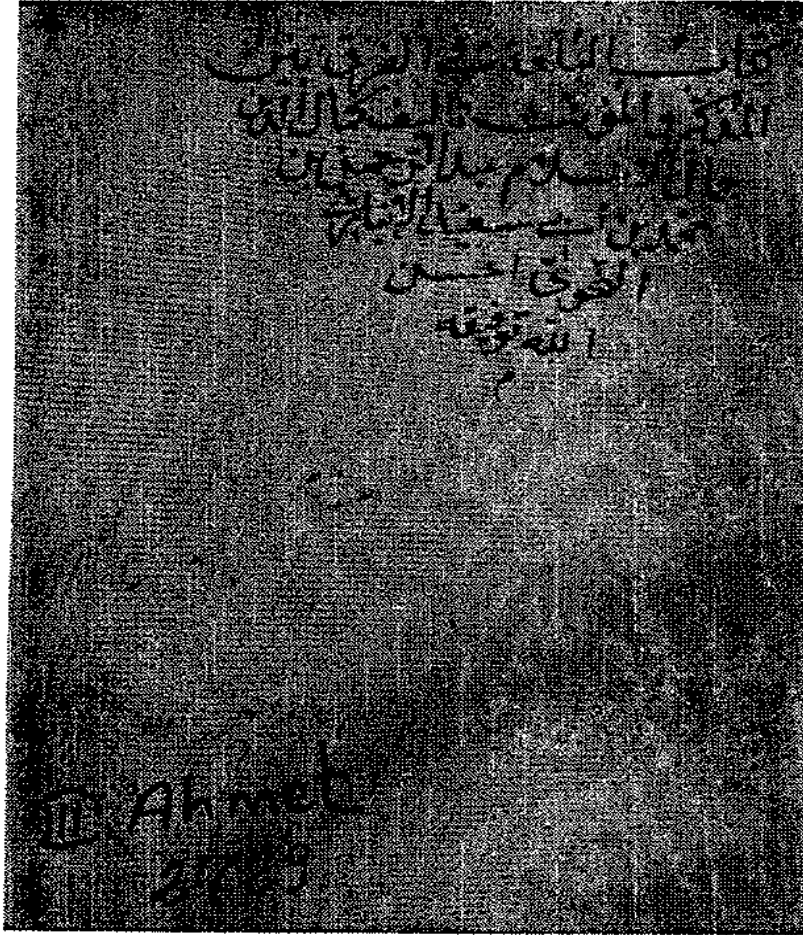 كتاب البلغة في الفرق بين
المذكر والمؤنث تاليف كمال الدين
جمال الاسلام عبد الرحمن بن
محمد بن أبي سعيد الانباري
النحوي احسن
الله توفيقه
م
III. Ahmet
2729